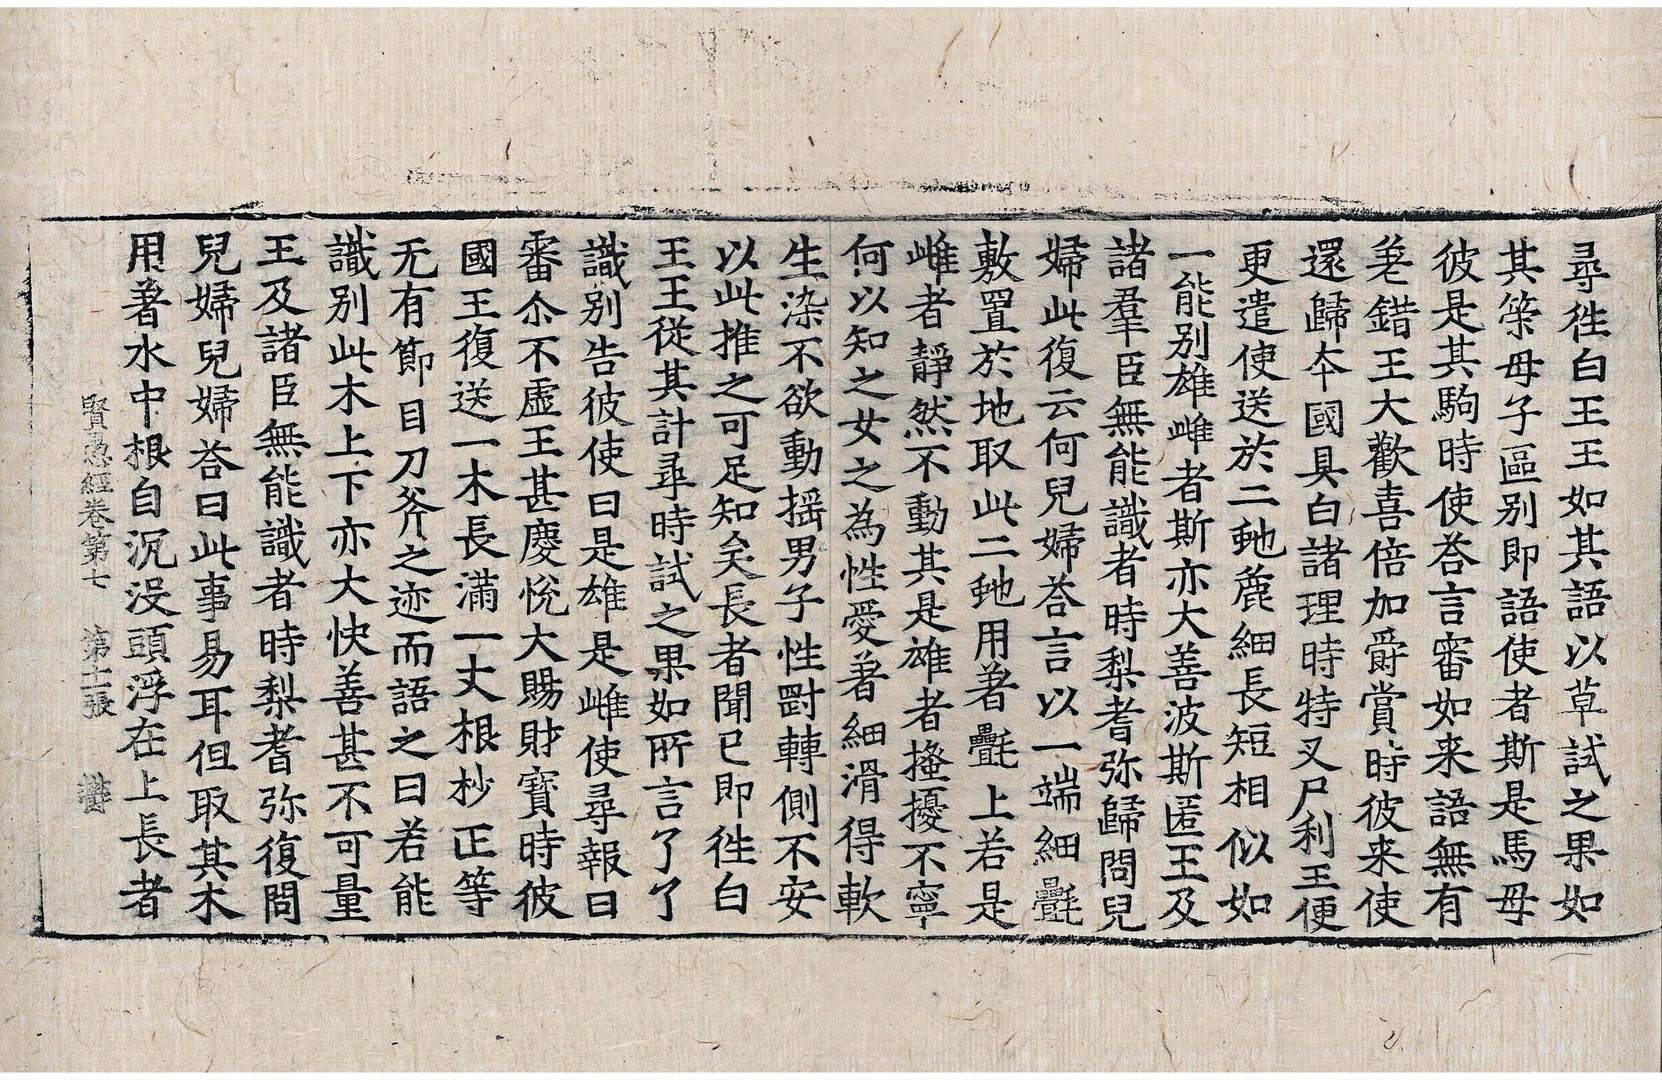 尋徃白王王如其語以草試之果如
其䇿母子區別即語使者斯是馬母
彼是其駒時使荅言審如来語無有
差錯王大歡喜倍加爵賞時彼来使
還歸夲國具白諸理時特叉尸利王便
更遣使送於二虵麁細長短相似如
一能別雄雌者斯亦大善波斯匿王及
諸羣臣無能識者時梨耆弥歸問兒
婦此復云何兒婦荅言以一端細㲲
敷置於地取此二虵用著㲲上若是
雌者靜然不動其是雄者搔擾不寧
何以知之女之為性愛著細滑得軟
生染不欲動揺男子性㓰轉側不安
以此推之可足知矣長者聞已即徃白
王王從其計尋時試之果如所言了了
識別告彼使曰是雄是雌使尋報曰
審尒不虛王甚慶悅大賜財寳時彼
國王復送一木長滿一丈根杪正等
无有節目刀斧之迹而語之曰若能
識別此木上下亦大快善甚不可量
王及諸臣無能識者時梨耆弥復問
兒婦兒婦荅曰此事易耳但取其木
用著水中根自沉没頭浮在上長者
賢愚經卷第七 第十一張 欝